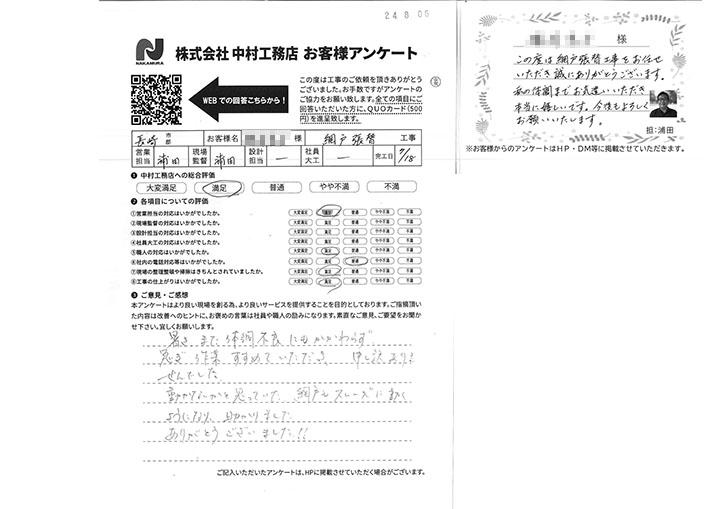 24 8 06
NAKAMURA
株式会社 中村工務店 お客様アンケート
WEBでの回答こちらから！
この度は工事のご依頼を頂きありがとう
ございました。お手数ですがアンケートへ
のご協力をお願い致します。全ての項目にご
回答いただいた方に、QUOカード(500
円)を進呈致します。
長崎 市郡 お客様名 様 網戸張替 工事
営業担当 浦田 現場監督 浦田 設計担当 ー 社員大工 ー 完工日 7/18
❶ 中村工務店への総合評価
大変満足 満足 普通 やや不満 不満
❷ 各項目についての評価
①営業担当の対応はいかがでしたか。 大変満足 満足 普通 やや不満 不満
②現場監督の対応はいかがでしたか。 大変満足 満足 普通 やや不満 不満
③設計担当の対応はいかがでしたか。 大変満足 満足 普通 やや不満 不満
④社員大工の対応はいかがでしたか。 大変満足 満足 普通 やや不満 不満
⑤職人の対応はいかがでしたか。 大変満足 満足 普通 やや不満 不満
⑥社内の電話対応等はいかがでしたか。 大変満足 満足 普通 やや不満 不満
⑦現場の整理整頓や掃除はきちんとされていましたか。 大変満足 満足 普通 やや不満 不満
⑧工事の仕上がりはいかがでしたか。 大変満足 満足 普通 やや不満 不満
❸ ご意見・ご感想
本アンケートはより良い現場を創る為、より良いサービスを提供することを目的としております。ご指摘頂い
た内容は改善へのヒントに、お褒めの言葉は社員や職人の励みになります。素直なご意見、ご要望をお聞
かせ下さい。宜しくお願いします。
暑さ また 体調不良にもかかわらず
急ぎ 作業 すすめていただき、申し訳ありま
せんでした。
動かないかと思っていた 網戸もスムーズに動く
ようになり、助かりました
ありがとうございました!!
ご記入いただいたアンケートは、HPに掲載させていただく場合がございます。
様
この度は網戸張替工事をお任せ
いただき誠にありがとうございます。
私の体調までお気遣いいただき
本当に嬉しいです。今後もよろしく
お願いいたします。
担:浦田
※お客様からのアンケートはHP・DM等に掲載させていただきます。